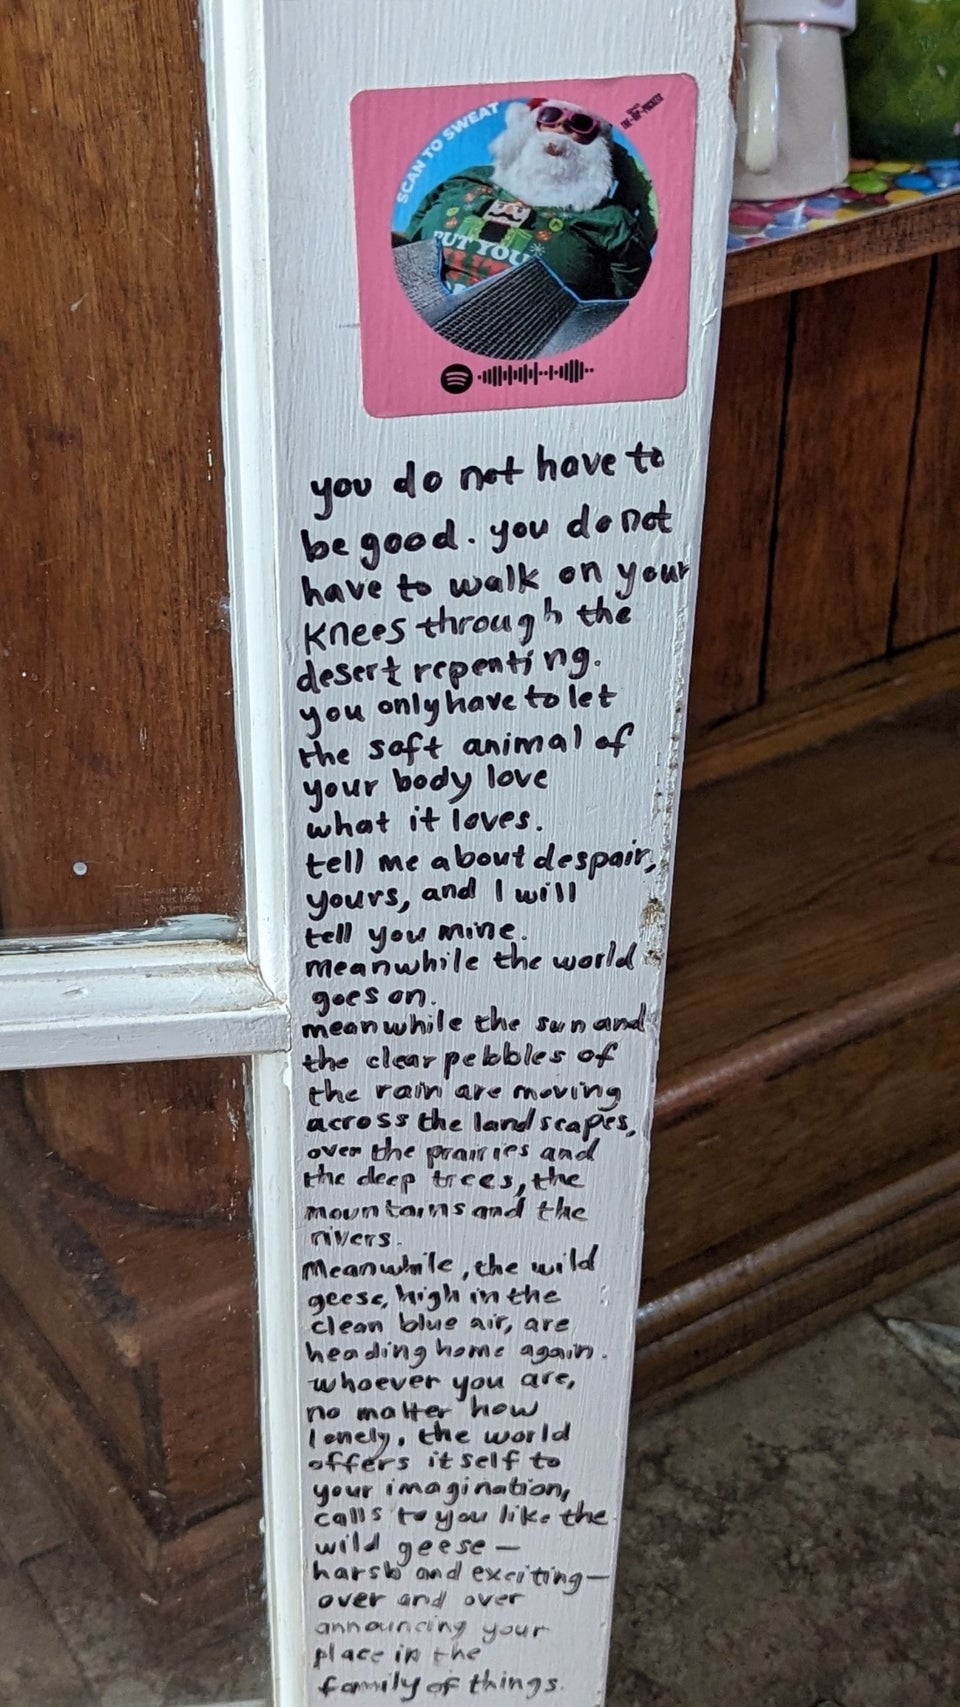 SCAN TO SWEAT
PUT YOU
you do not have to
be good. you do not
have to walk on your
knees through the
desert repenting.
you only have to let
the soft animal of
your body love
what it loves.
tell me about despair,
yours, and I will
tell you mine.
meanwhile the world
goes on.
meanwhile the sun and
the clear pebbles of
the rain are moving
across the landscapes,
over the prairies and
the deep trees, the
mountains and the
rivers.
Meanwhile, the wild
geese, high in the
clean blue air, are
heading home again.
whoever you are,
no matter how
lonely, the world
offers itself to
your imagination,
calls to you like the
wild geese —
harsh and exciting—
over and over
announcing your
place in the
family of things.